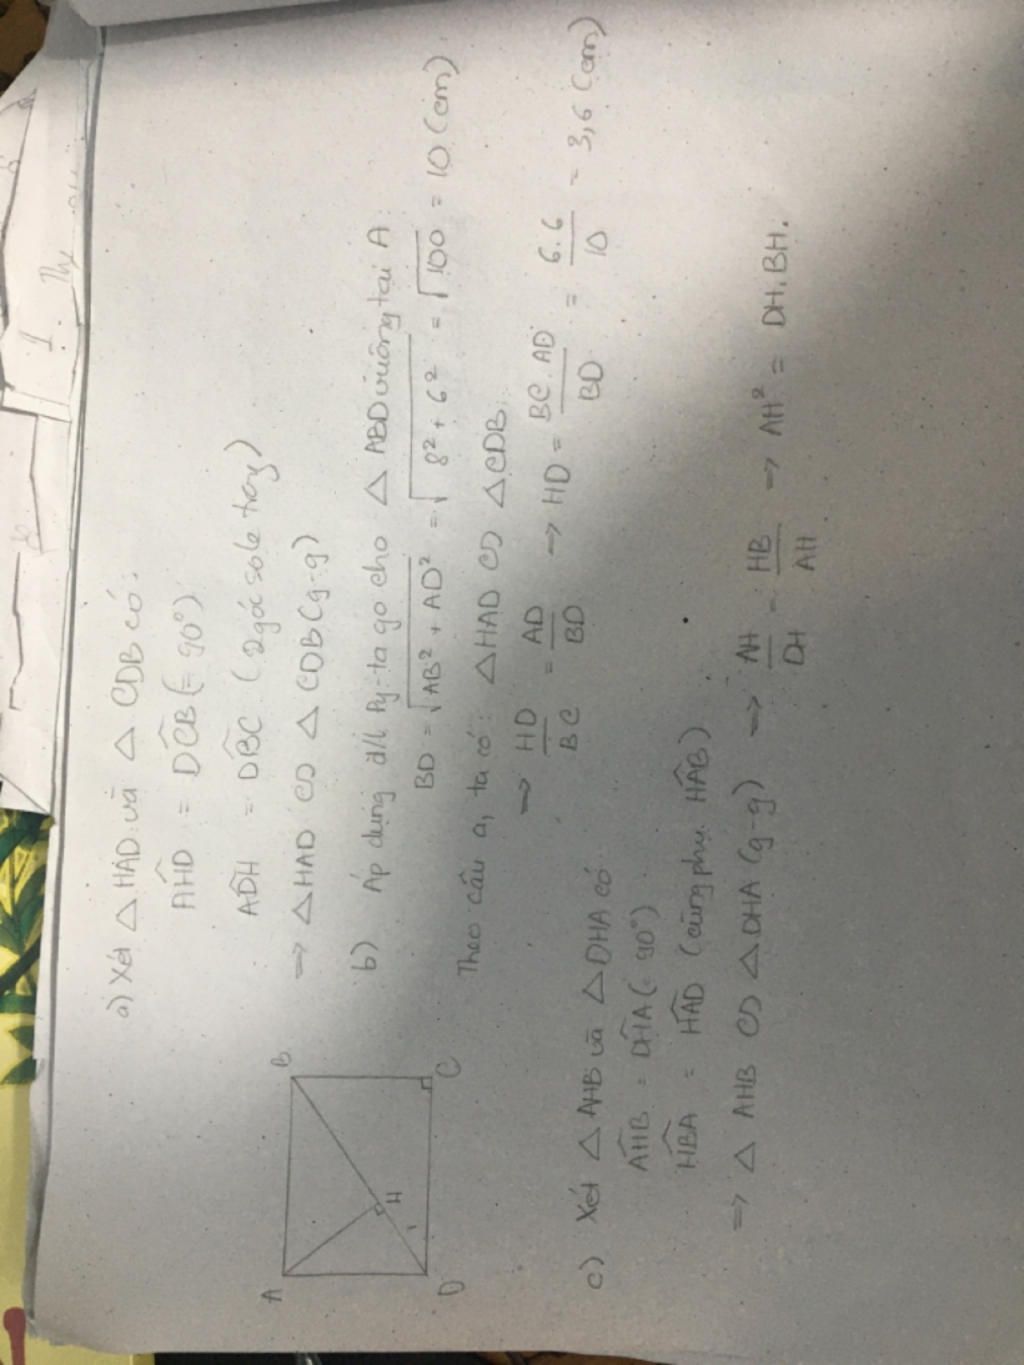 a) Xét △ HAD và △ CDB có:
AĤD = DĈB (= 90°)
AD̂H = DB̂C (2 góc so le trong)
=> △ HAD ∽ △ CDB (g-g)
A
B
H
D
C
b) Áp dụng đ/l Py-ta go cho △ ABD vuông tại A:
BD = √AB² + AD² = √8² + 6² = √100 = 10 (cm)
Theo câu a, ta có: △ HAD ∽ △ CDB
=> HD/BC = AD/BD => HD = BC.AD/BD = 6.6/10 = 3,6 (cm)
c) Xét △ AHB và △ DHA có
AĤB = DĤA (= 90°)
HB̂A = HÂD (cùng phụ HÂB)
=> △ AHB ∽ △ DHA (g-g) => AH/DH = HB/AH => AH² = DH.BH.